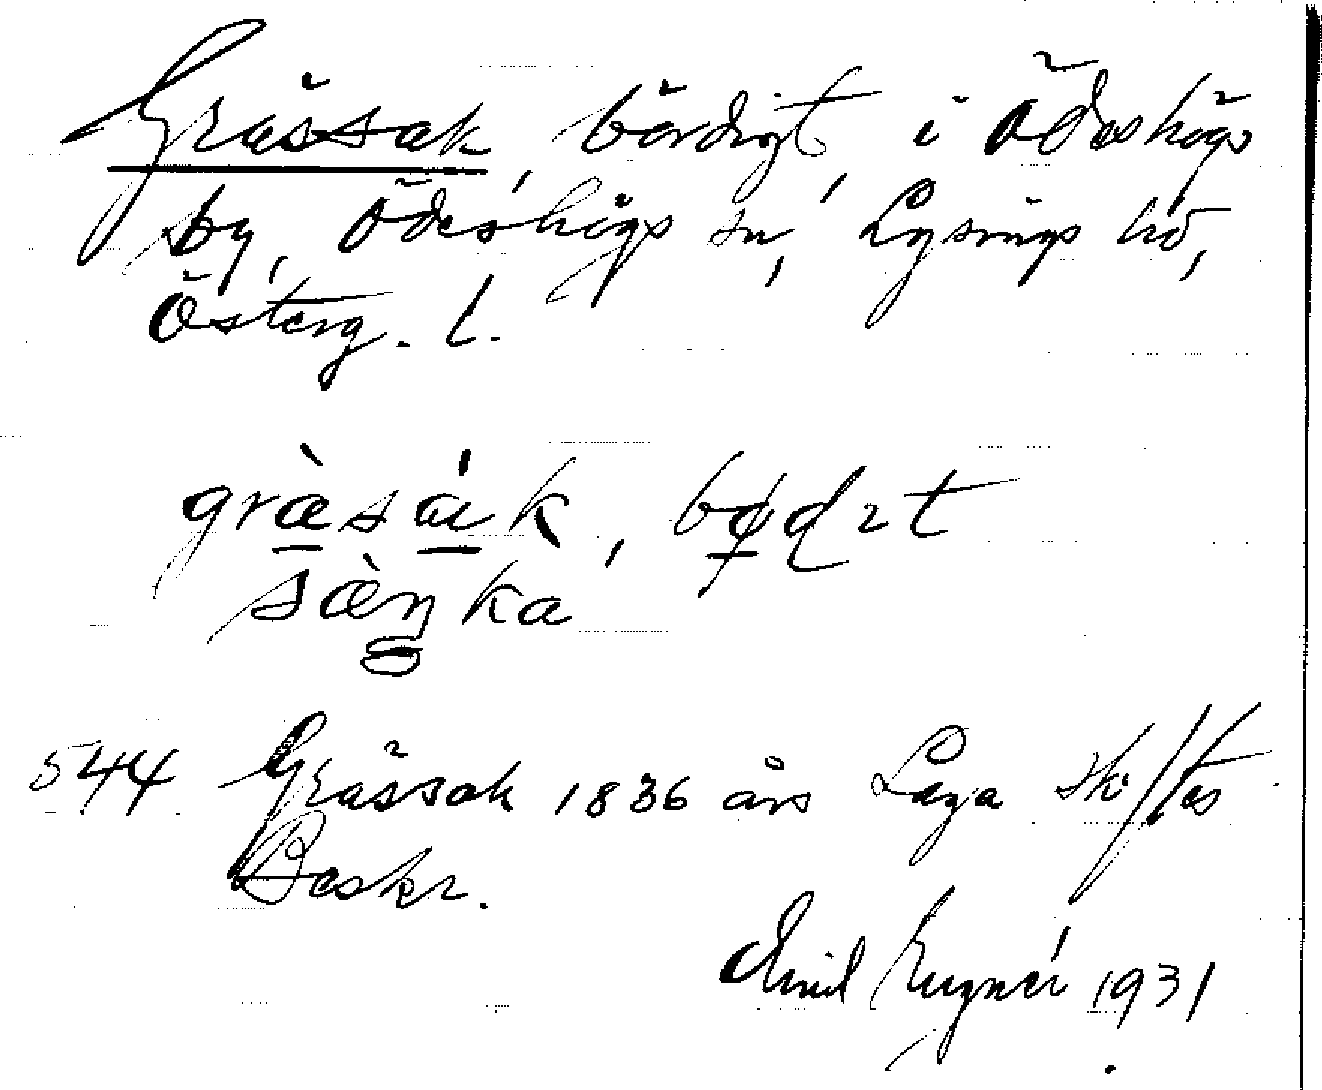 Gråssak, bördigt, i Ödeshögs
by, Ödeshögs sn, Lysings hd,
Österg. l.
gràsák, bødıt
sàŋka
544 Gråssak 1836 års Laga skiftes
Beskr.
Emil 1931